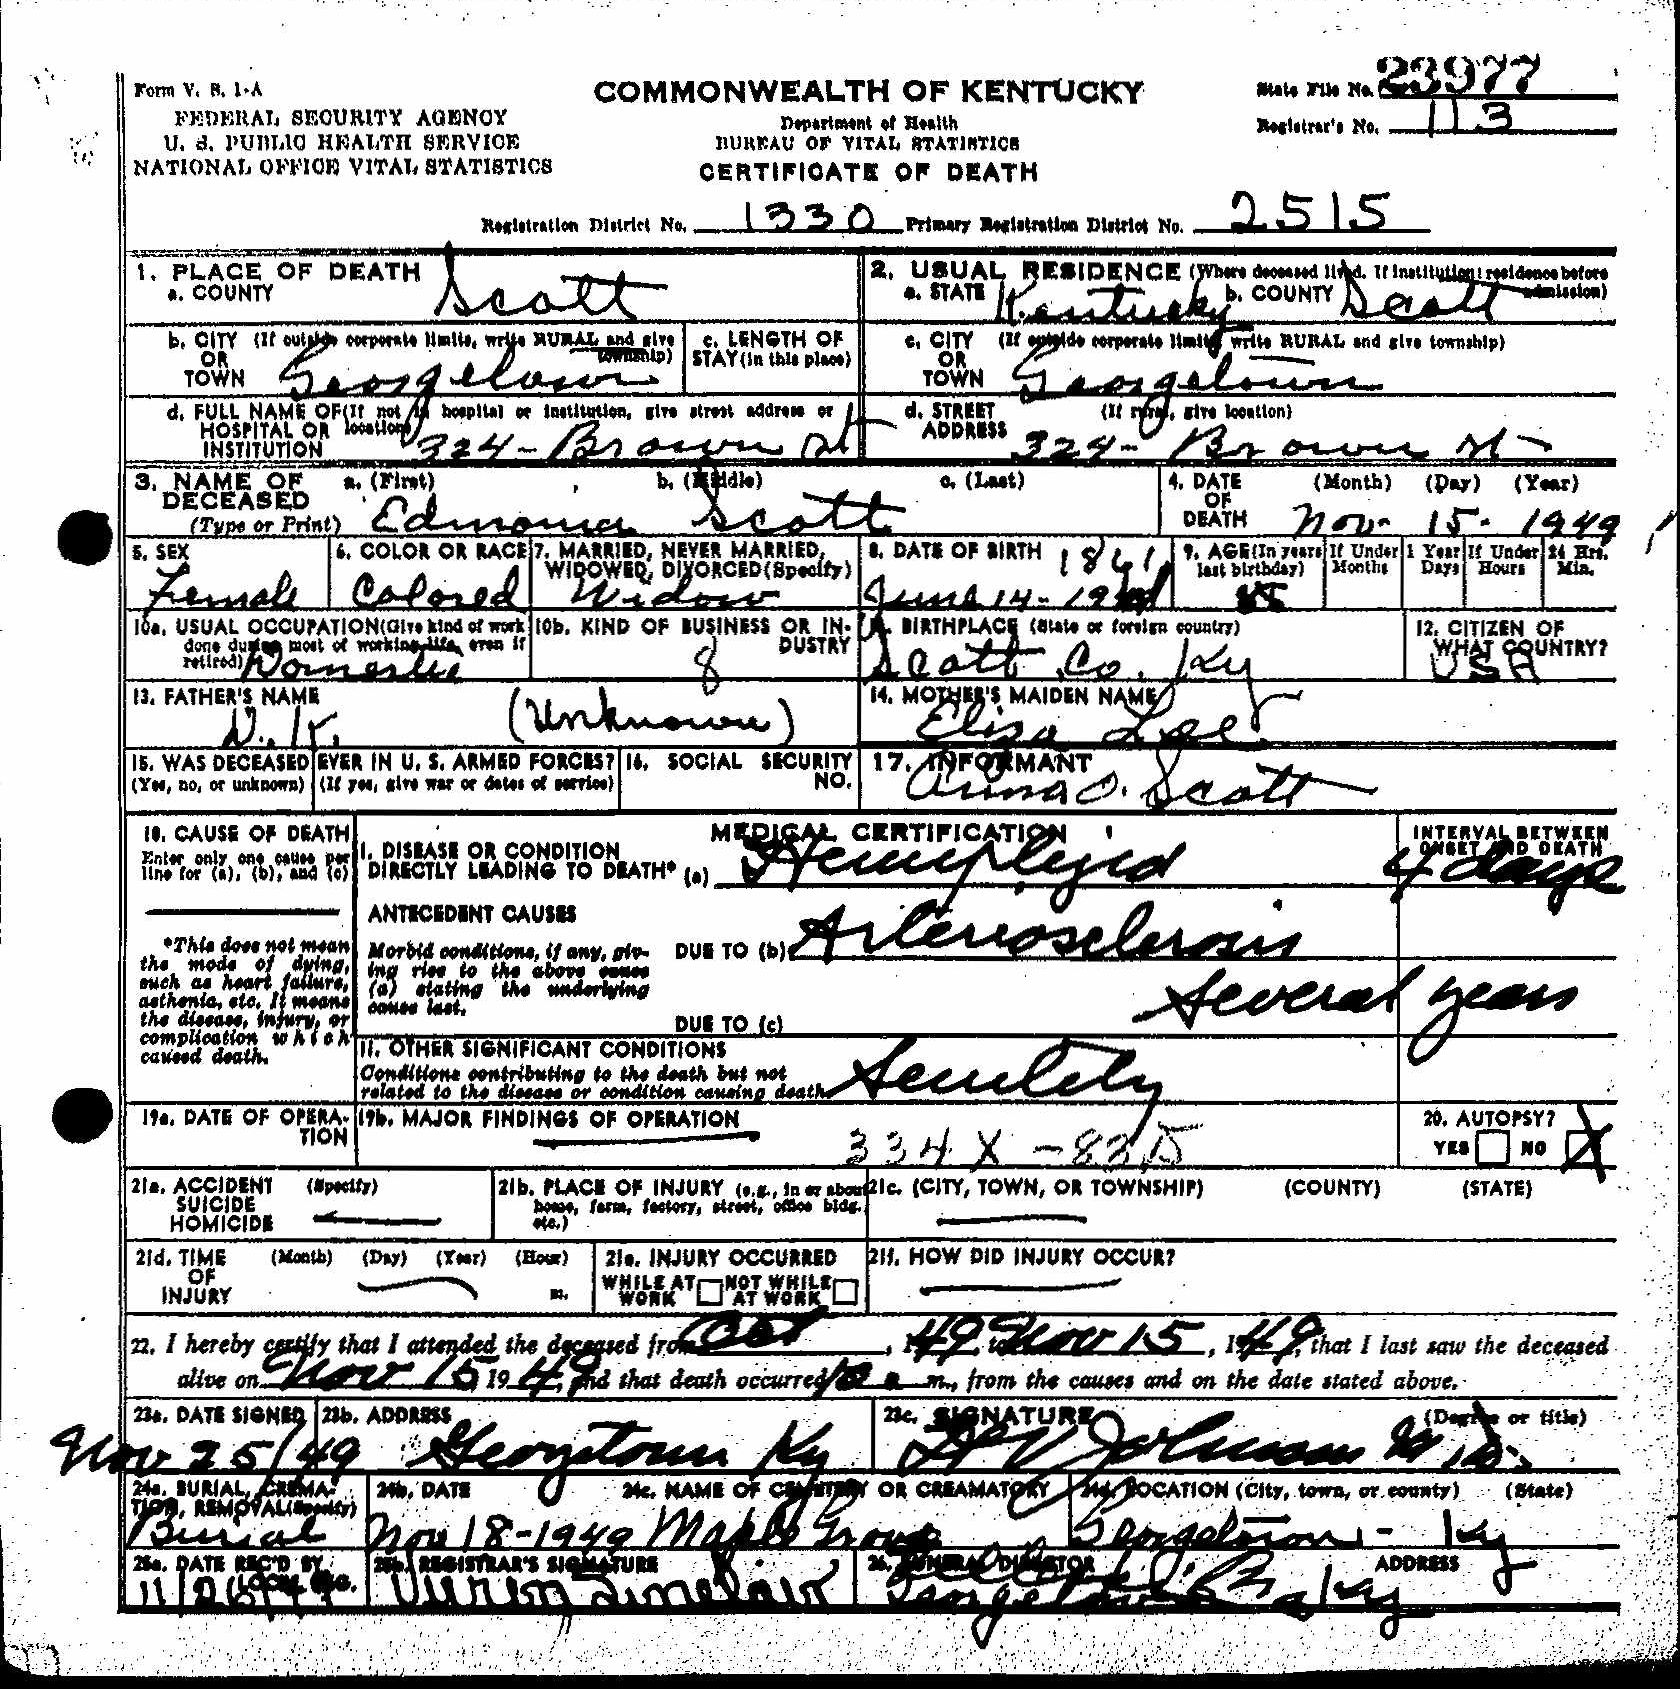 Form V. S. 1-A
FEDERAL SECURITY AGENCY
U. S. PUBLIC HEALTH SERVICE
NATIONAL OFFICE VITAL STATISTICS
COMMONWEALTH OF KENTUCKY
Department of Health
BUREAU OF VITAL STATISTICS
CERTIFICATE OF DEATH
State File No. 23977
Registrar's No. 113
Registration District No. 1330 Primary Registration District No. 2515
1. PLACE OF DEATH
a. COUNTY Scott
2. USUAL RESIDENCE (Where deceased lived. If institution: residence before admission)
a. STATE Kentucky b. COUNTY Scott
b. CITY (If outside corporate limits, write RURAL and give township)
OR
TOWN Georgetown
c. LENGTH OF
STAY (in this place)
c. CITY (If outside corporate limits, write RURAL and give township)
OR
TOWN Georgetown
d. FULL NAME OF (If not in hospital or institution, give street address or location)
HOSPITAL OR
INSTITUTION 324- Brown St
d. STREET (If rural, give location)
ADDRESS 324- Brown St-
3. NAME OF DECEASED
(Type or Print)
a. (First) b. (Middle) c. (Last)
Edmonia Scott
4. DATE OF DEATH (Month) (Day) (Year)
Nov- 15- 1949
5. SEX
Female
6. COLOR OR RACE
Colored
7. MARRIED, NEVER MARRIED,
WIDOWED, DIVORCED (Specify)
Widow
8. DATE OF BIRTH 1861
June 14-
9. AGE (In years last birthday)
If Under 1 Year
Months Days
If Under 24 Hrs.
Hours Min.
10a. USUAL OCCUPATION (Give kind of work
done during most of working life, even if
retired) Domestic
10b. KIND OF BUSINESS OR INDUSTRY
8
11. BIRTHPLACE (State or foreign country)
Scott Co. Ky
12. CITIZEN OF
WHAT COUNTRY?
USA
13. FATHER'S NAME
D. K. (Unknown)
14. MOTHER'S MAIDEN NAME
Eliza Lee
15. WAS DECEASED EVER IN U. S. ARMED FORCES?
(Yes, no, or unknown) (If yes, give war or dates of service)
16. SOCIAL SECURITY
NO.
17. INFORMANT
Anna O. Scott
18. CAUSE OF DEATH
Enter only one cause per
line for (a), (b), and (c)
*This does not mean
the mode of dying,
such as heart failure,
asthenia, etc. It means
the disease, injury, or
complication which
caused death.
MEDICAL CERTIFICATION
INTERVAL BETWEEN
ONSET AND DEATH
I. DISEASE OR CONDITION
DIRECTLY LEADING TO DEATH* (a) Hemiplegia 4 days
ANTECEDENT CAUSES
Morbid conditions, if any, giving rise to the above cause (a) stating the underlying cause last.
DUE TO (b) Arteriosclerosis
Several years
DUE TO (c)
II. OTHER SIGNIFICANT CONDITIONS
Conditions contributing to the death but not
related to the disease or condition causing death. Senility
19a. DATE OF OPERATION
19b. MAJOR FINDINGS OF OPERATION
334X -
20. AUTOPSY?
YES NO X
21a. ACCIDENT (Specify)
SUICIDE
HOMICIDE
21b. PLACE OF INJURY (e.g., in or about
home, farm, factory, street, office bldg.,
etc.)
21c. (CITY, TOWN, OR TOWNSHIP) (COUNTY) (STATE)
21d. TIME (Month) (Day) (Year) (Hour)
OF
INJURY m.
21e. INJURY OCCURRED
WHILE AT WORK NOT WHILE AT WORK
21f. HOW DID INJURY OCCUR?
22. I hereby certify that I attended the deceased from Oct, 1949, to Nov 15, 1949, that I last saw the deceased
alive on Nov 15, 1949, and that death occurred 10 a m., from the causes and on the date stated above.
23a. DATE SIGNED
Nov 25/49
23b. ADDRESS
Georgetown Ky
23c. SIGNATURE (Degree or title)
Johnson M.D.
24a. BURIAL, CREMATION, REMOVAL (Specify)
Burial
24b. DATE
Nov 18-1949
24c. NAME OF CEMETERY OR CREAMATORY
Maple Grove
24d. LOCATION (City, town, or county) (State)
Georgetown- Ky
25a. DATE REC'D BY LOCAL REG.
11/26/49
25b. REGISTRAR'S SIGNATURE
Sinclair
26. FUNERAL DIRECTOR ADDRESS
Georgetown Ky